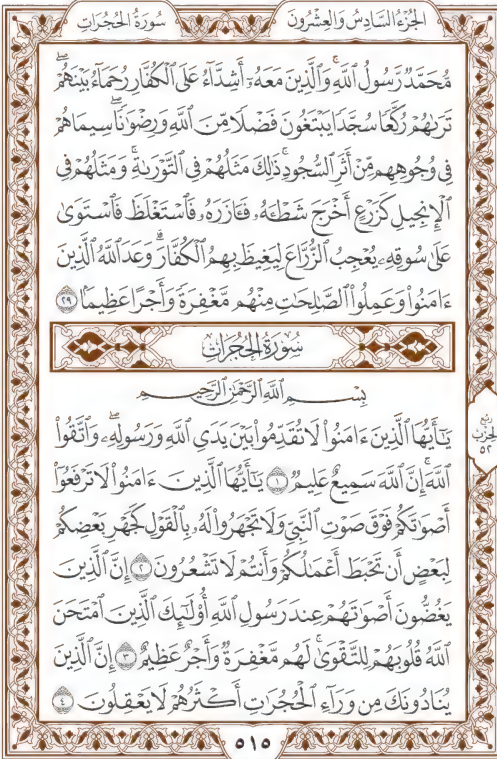 سُورَةُ الحُجُرَاتِ
الجُزْءُ السَّادِسُ وَالعِشْرُونَ
مُّحَمَّدٌ رَّسُولُ ٱللَّهِ وَٱلَّذِينَ مَعَهُۥٓ أَشِدَّآءُ عَلَى ٱلْكُفَّارِ رُحَمَآءُ بَيْنَهُمْ ۖ
تَرَىٰهُمْ رُكَّعًا سُجَّدًا يَبْتَغُونَ فَضْلًا مِّنَ ٱللَّهِ وَرِضْوَٰنًا ۖ سِيمَاهُمْ
فِى وُجُوهِهِم مِّنْ أَثَرِ ٱلسُّجُودِ ۚ ذَٰلِكَ مَثَلُهُمْ فِى ٱلتَّوْرَىٰةِ ۚ وَمَثَلُهُمْ فِى
ٱلْإِنجِيلِ كَزَرْعٍ أَخْرَجَ شَطْـَٔهُۥ فَـَٔازَرَهُۥ فَٱسْتَغْلَظَ فَٱسْتَوَىٰ
عَلَىٰ سُوقِهِۦ يُعْجِبُ ٱلزُّرَّاعَ لِيَغِيظَ بِهِمُ ٱلْكُفَّارَ ۗ وَعَدَ ٱللَّهُ ٱلَّذِينَ
ءَامَنُوا۟ وَعَمِلُوا۟ ٱلصَّـٰلِحَـٰتِ مِنْهُم مَّغْفِرَةً وَأَجْرًا عَظِيمًۢا ٢٩
سُورَةُ الحُجُرَاتِ
بِسْمِ ٱللَّهِ ٱلرَّحْمَـٰنِ ٱلرَّحِيمِ
يَـٰٓأَيُّهَا ٱلَّذِينَ ءَامَنُوا۟ لَا تُقَدِّمُوا۟ بَيْنَ يَدَىِ ٱللَّهِ وَرَسُولِهِۦ ۖ وَٱتَّقُوا۟
ٱللَّهَ ۚ إِنَّ ٱللَّهَ سَمِيعٌ عَلِيمٌ ١ يَـٰٓأَيُّهَا ٱلَّذِينَ ءَامَنُوا۟ لَا تَرْفَعُوٓا۟
أَصْوَٰتَكُمْ فَوْقَ صَوْتِ ٱلنَّبِىِّ وَلَا تَجْهَرُوا۟ لَهُۥ بِٱلْقَوْلِ كَجَهْرِ بَعْضِكُمْ
لِبَعْضٍ أَن تَحْبَطَ أَعْمَـٰلُكُمْ وَأَنتُمْ لَا تَشْعُرُونَ ٢ إِنَّ ٱلَّذِينَ
يَغُضُّونَ أَصْوَٰتَهُمْ عِندَ رَسُولِ ٱللَّهِ أُو۟لَـٰٓئِكَ ٱلَّذِينَ ٱمْتَحَنَ
ٱللَّهُ قُلُوبَهُمْ لِلتَّقْوَىٰ ۚ لَهُم مَّغْفِرَةٌ وَأَجْرٌ عَظِيمٌ ٣ إِنَّ ٱلَّذِينَ
يُنَادُونَكَ مِن وَرَآءِ ٱلْحُجُرَٰتِ أَكْثَرُهُمْ لَا يَعْقِلُونَ ٤
رُبْع
الحِزْب
٥٢
٥١٥